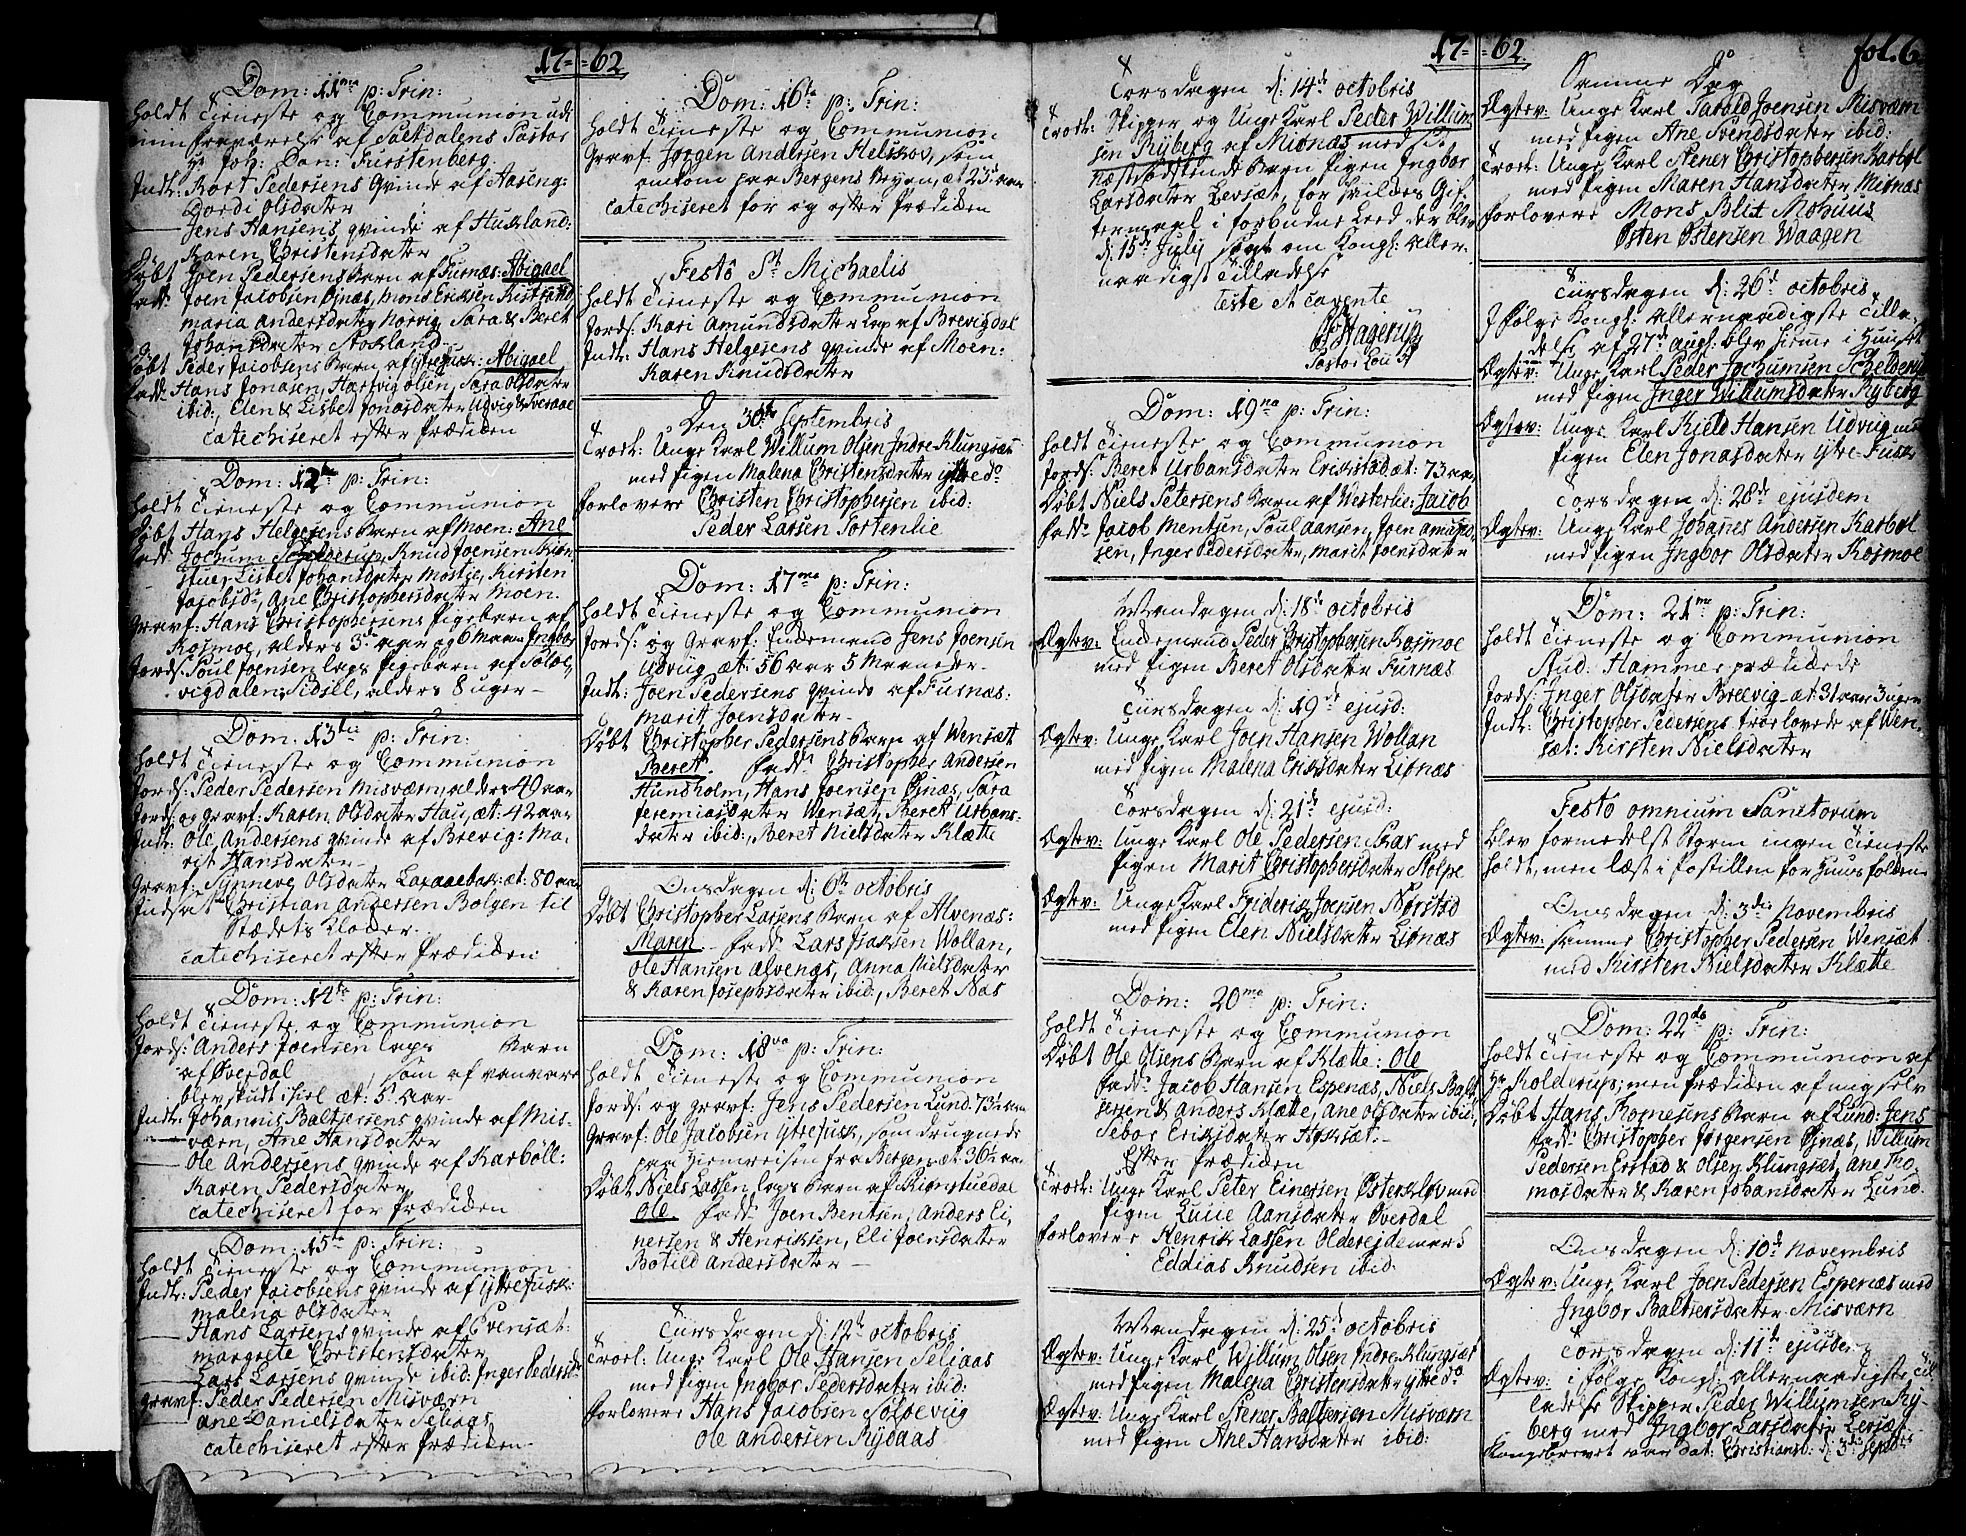 17 = = 62
Dom: 11me p: Trin:
holdt Tieneste og Communion udi
min fraværelse af Saltdalens Pastor
Hr Joh: Dan: Fürstenberg.
Indl: Kort Pedersens Qvinde af Aaseng:
Dordi Olsdater
— Jens Hansens qvinde af Huskland:
Karen Christensdater
Døbt Joen Pedersens Barn af Furnæs: Abigael
Fadd: Joen Jacobsen Øjnæs, Mons Eriksen Kistrand
Maria Andersdater Norvig, Sara & Beret
Johansdater Stokland.
Døbt Peder Jacobsens Barn af Ytrefusk: Abigael
Fadd: Hans Jonasen, Hartvig Olsen, Sara Olsdater
ibid:, Elen & Lisbed Jonasdater Udvig & Sveraae
catechiseret efter Prædiken
Dom: 12te p: Trin:
holdt Tieneste og Communion
Døbt Hans Helgesens Barn af Moen: Ane
Fadd: Jochum Schelderup, Knud Joensen Kiørn-
stue, Lisbet Johansdater Mostje, Kirsten
Jacobsdr, Ane Christophersdater Moen.
Gravf: Hans Christophersens pigebarn af
Kosmoe, alders 3de aar og 6 Maan: Ingbor
Jords: Poul Joensen laps pigebarn af Soløe-
vigdalen, Sidsel, alders 8 uger —
Dom: 13tie p: Trin:
holdt Tieneste og Communion
Jords: Peder Pedersen Misværn, alders 40 aar
Jords: og Gravf: Karen Olsdater Hau, æt: 42 aar
Indl: Ole Andersens qvinde af Brevig: Ma-
rit Hansdater —
Gravf: Synneve Olsdater æt: 80 aar
Indsat Christian Andersen Bolgen til
Stædets Klocker.
catechiseret efter Prædiken:
Dom: 14de p: Trin:
holdt Tieneste og Communion
Jords: Anders Joensen laps Barn
af Øverdal , som af vanvare
blev skudt ihiel æt: 5 Aar
Indl: Johannis Baltzersens qvinde af Mis-
værn, Ane Hansdater
— Ole Andersens qvinde af Karbøll:
Karen Pedersdater
catechiseret for Prædiken
Dom: 15te p: Trin:
holdt Tieneste og Communion
Indl: Peder Jacobsens qvinde af Ytrefusk:
Malena Olsdater
— Hans Larsens qvinde af Evensæt:
Margrete Christensdater
— Lars Larsens qvinde ibid: Inger Pedersdr
Gravf: Peder Pedersen Misværn
— Ane Danielsdater Seliaas
catechiseret efter Prædiken
Dom: 16te p: Trin:
holdt Tieneste og Communion
Gravf: Jørgen Andersen Helskov, som
omkom paa Bergens Reysen, æt 23: aar
catechiseret for og efter Prædiken
Festo St Michaelis
holdt Tieneste og Communion
Jords: Kari Amundsdater Lap af Brevigdal
Indl: Hans Helgesens qvinde af Moen:
Karen Knudsdater
Den 30te Septembris
Trol: Unge Karl Willum Olsen Indre Klungsæt
med pigen Malena Christensdater ytre do
Forlovere Christen Christophersen ibid:
Peder Larsen Tortenlie
Dom: 17me p: Trin:
holdt Tieneste og Communion
Jords: og Gravf: Enckemand Jens Joensen
Udvug æt: 56 aar 5 Maaneder.
Indl: Joen Pedersens qvinde af Furnæs:
Maritt Joensdater
Døbt Christopher Pedersens Barn af Wensæt
Beret. Fadd: Christopher Andersen
Hunsholm, Hans Joensen Øjnæs, Sara
Jeremiasdater Wensæt, Beret Urbans-
dater ibid:, Beret Nielsdater Klætte
Onsdagen d: 6te octobris
Døbt Christopher Larsens Barn af Alvenæs:
Maren. Fadd: Lars Isaksen Wollan,
Ole Hansen Alvenæs, Anna Nielsdater
& Karen Josephsdater ibid:, Beret Næs
Dom: 18va p: Trin:
holdt Tieneste og Communion
Jords: og Gravf: Jens Pedersen Lund: 73 aar
Gravf: Ole Jacobsen Ytrefusk, som druknede
paa Hiemreisen fra Bergen æt: 36te aar
Døbt Niels Lassen laps Barn af Kiørnstuedal
Ole Fadd: Joen Bentsen, Anders Ei-
nersen & Henriksen, Eli Joensdater
Botild Andersdater —
Tiirsdagen d: 12te octobris
Trol: Unge Karl Ole Hansen Seliaas
med pigen Ingbor Pedersdater ibid:
Forlovere Hans Jacobsen Soløevig
Ole Andersen Rydaas
17 = = 62.
fol. 6
Torsdagen d: 14de octobris
Trol: Skipper og Unge Karl Peder Willum
sen Ryberg af Miønæs med sit
Næstsødskende Barn pigen Ingbor
Larsdater Levsæt, for hvildes Gif-
termaal i forbudne Leed der blev
d: 15de July søgt om Kongl: Aller-
naadigst Tilladelse
teste et cavente
Hagerup
Pastor Loci
Dom: 19na p: Trin:
holdt Tieneste og Communion
Jords: Beret Urbansdater Erikstad æt: 73 aar
Døbt Niels Petersens Barn af Westerlie: Jacob
Fadd: Jacob Mentsen, Poul Aansen, Joen Amund-
sen, Inger Pedersdater, Marit Joensdater
Mandagen d: 18de octobris
Ægtev: Enckemand Peder Christophersen Kosmoe
med pigen Beret Olsdater Furnæs
Tiirsdagen d: 19de ejusd:
Ægtev: Unge Karl Joen Hansen Wollan
med pigen Malena Eriksdater Liønæs
Torsdagen d: 21de ejusd:
Ægtev: Unge Karl Ole Pedersen Skar med
pigen Marit Christophersdater Stolpe
Ægtev: Unge Karl Friderik Joensen Nørstad
med pigen Elen Nielsdater Liønæs
Dom: 20ma p: Trin:
holdt Tieneste og Communion
Døbt Ole Olsens Barn af Klætte: Ole
Fadd: Jacob Hansen Espenæs, Niels Balt-
sersen & Anders Klætte, Ane Olsdater ibid:
Sebor Eriksdater Høksæt.
Efter Prædiken
Trol: Unge Karl Peter Einersen Østerkløv med
pigen Lucie Aansdater Øverdal
Forlovere Henrik Lassen Oldereidemark
Eddias Knudsen ibid:
Mandagen d: 25de octobris
Ægtev: Unge Karl Willum Olsen Indre Klungsæt
med pigen Malena Christensdater Ytre do
Ægtev: Unge Karl Stener Baltsersen Misværn
med pigen Ane Hansdater ibid:
Samme Dag
Ægtev: Unge Karl Harold Joensen Misværn
med pigen Ane Svendsdater ibid:
Trol: Unge Karl Stener Christophersen Karbøl
med pigen Maren Hansdater Miønæs
Forlovere Mons Blix Mohuus
Østen Østensen Waagen
Tiirsdagen d: 26de octobris
Ifølge Kongl: Allernaadigste Tilla-
delse af 27de Augt: blev hiemme i Huuset
Ægtev: Unge Karl Peder Jochumsen Schelderup
med pigen Inger Willumsdater Ryberg
Ægtev: Unge Karl Kield Hansen Udvug med
pigen Elen Jonasdater ytre-Fusk
Torsdagen d: 28de ejusdem
Ægtev: Unge Karl Johanes Andersen Karbøl
med pigen Ingbor Olsdater Kosmoe
Dom: 21ma p: Trin:
holdt Tieneste og Communion
Stud: Hammer prædikede
Jords: Inger Olsdater Breevig æt: 31 aar 3 uger
Indl: Christopher Pedersens trolovede af Wen-
sæt: Kirsten Nielsdater
Festo omnium Sanctorum
blev formedelst Storm ingen Tieneste
holdt, men læst i Postillen for Huusfolkene
Onsdagen d: 3die Novembris
Ægtev: samme Christopher Pedersen Wensæt
med Kirsten Nielsdater Klætte
Dom: 22da p: Trin:
holdt Tieneste og Communion af
Hr Kolderup; men Prædiken af mig selv
Døbt Hans Thomesens Barn af Lund: Jens
Fadd: Christopher Jørgensen Øjnæs, Willum
Pedersen Erstad & Olsen Klungsæt, Ane Tho-
masdater & Karen Johansdater Lund.
Onsdagen d: 10de Novembris
Ægtev: Unge Karl Joen Pedersen Espenæs med
Ingbor Baltsersdater Misværn
Torsdagen d: 11te ejusdem
Ægtev: ifølge Kongl: allernaadigste Til
ladelse Skipper Peder Willumsen Ry-
berg med Ingbor Larsdater Levsæt
Kongebrevet var dat: Christiansb: d: 3die Septbr